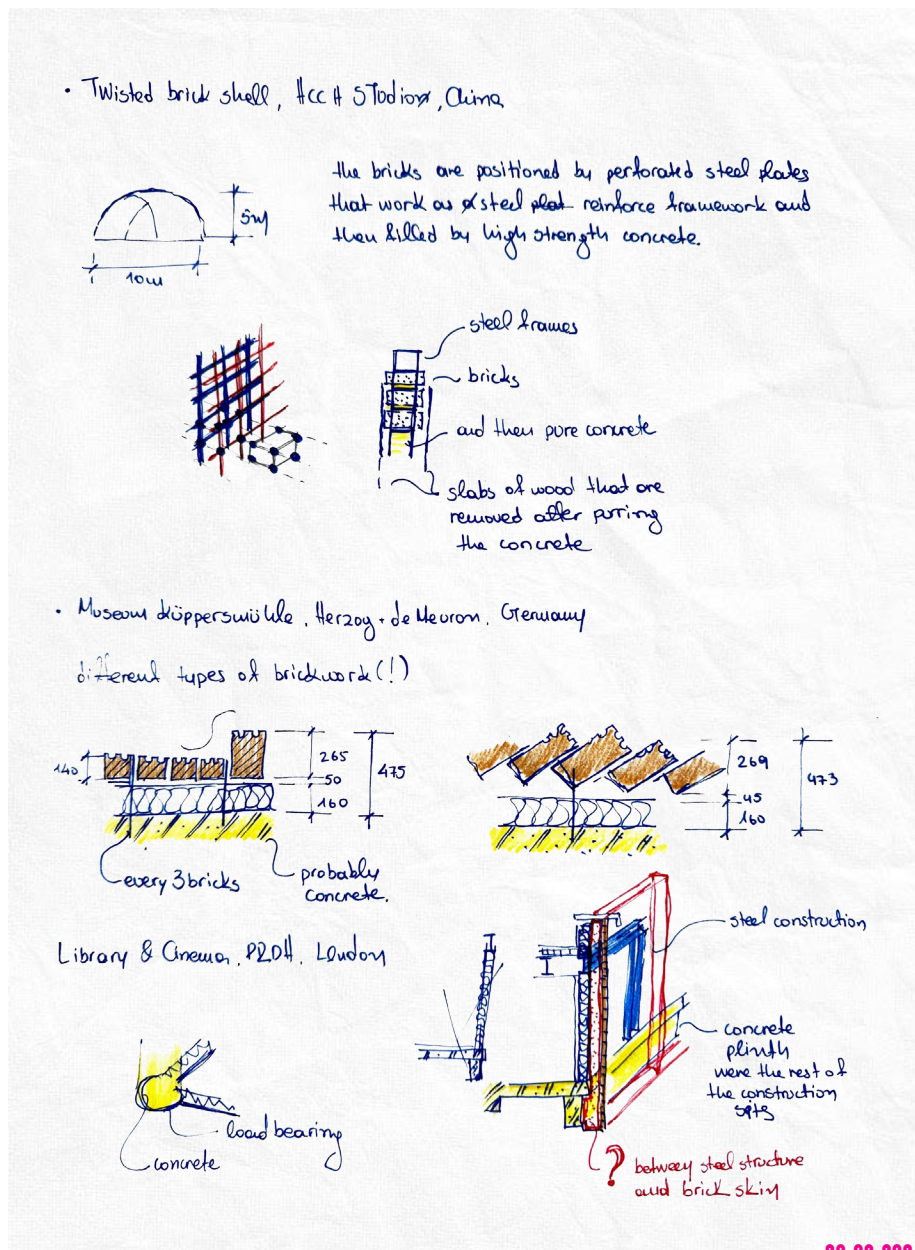 • Twisted brick shell, HCCH Studio, China
the bricks are positioned by perforated steel plates
that work as steel plat reinforce framework and
then filled by high strength concrete.
5m
10m
steel frames
bricks
and then pure concrete
slabs of wood that are
removed after purring
the concrete
• Museum Küppersmühle, Herzog + de Meuron, Germany
different types of brickwork (!)
140
265
50
160
475
269
45
160
473
every 3 bricks
probably
concrete.
Library & Cinema, London
steel construction
concrete
plinth
were the rest of
the construction
sits
load bearing
concrete
? between steel structure
and brick skin